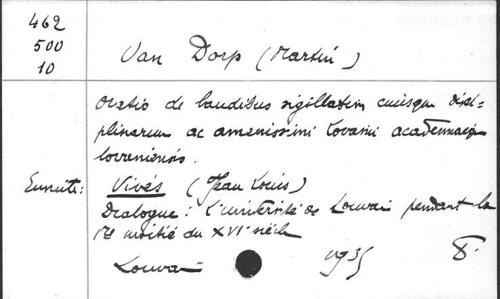 462
500
10
Van Dorp (Martin)
Oratio de laudibus sigillatim cuiusque disci=
plinarum ac amenissimi Lovanii academiaeque
lovaniensis.
Ensuite: Vivés (Jean Louis)
Dialogue: l'université de Louvain pendant la
1e moitié du XVIe siècle
Louvain 1935 8°.